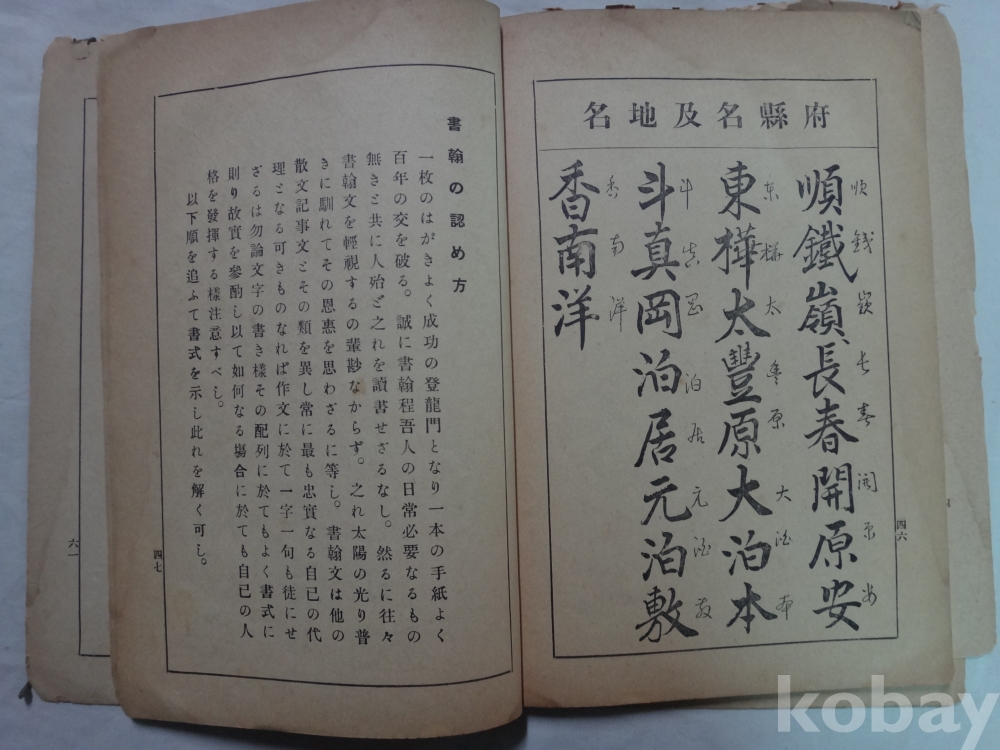 府縣名及地名
順鐵嶺長春開原安
順鐵嶺長春開原安
東樺太豐原大泊本
東樺太豊原大泊本
斗真岡泊居元泊敷
斗真岡泊居元泊敷
香南洋
香南洋
四六
書翰の認め方
一枚のはがきよく成功の登龍門となり一本の手紙よく
百年の交を破る。誠に書翰程吾人の日常必要なるもの
無きと共に人殆ど之れを讀書せざるなし。然るに往々
書翰文を輕視するの輩尠なからず。之れ太陽の光り普
きに馴れてその恩惠を思わざるに等し。書翰文は他の
散文記事文とその類を異し常に最も忠實なる自己の代
理となる可きものなれば作文に於て一字一句も徒にせ
ざるは勿論文字の書き樣その配列に於てもよく書式に
則り故實を參酌し以て如何なる塲合に於ても自己の人
格を發揮する樣注意すべし。
以下順を追ふて書式を示し此れを解く可し。
四七
六一
kobay